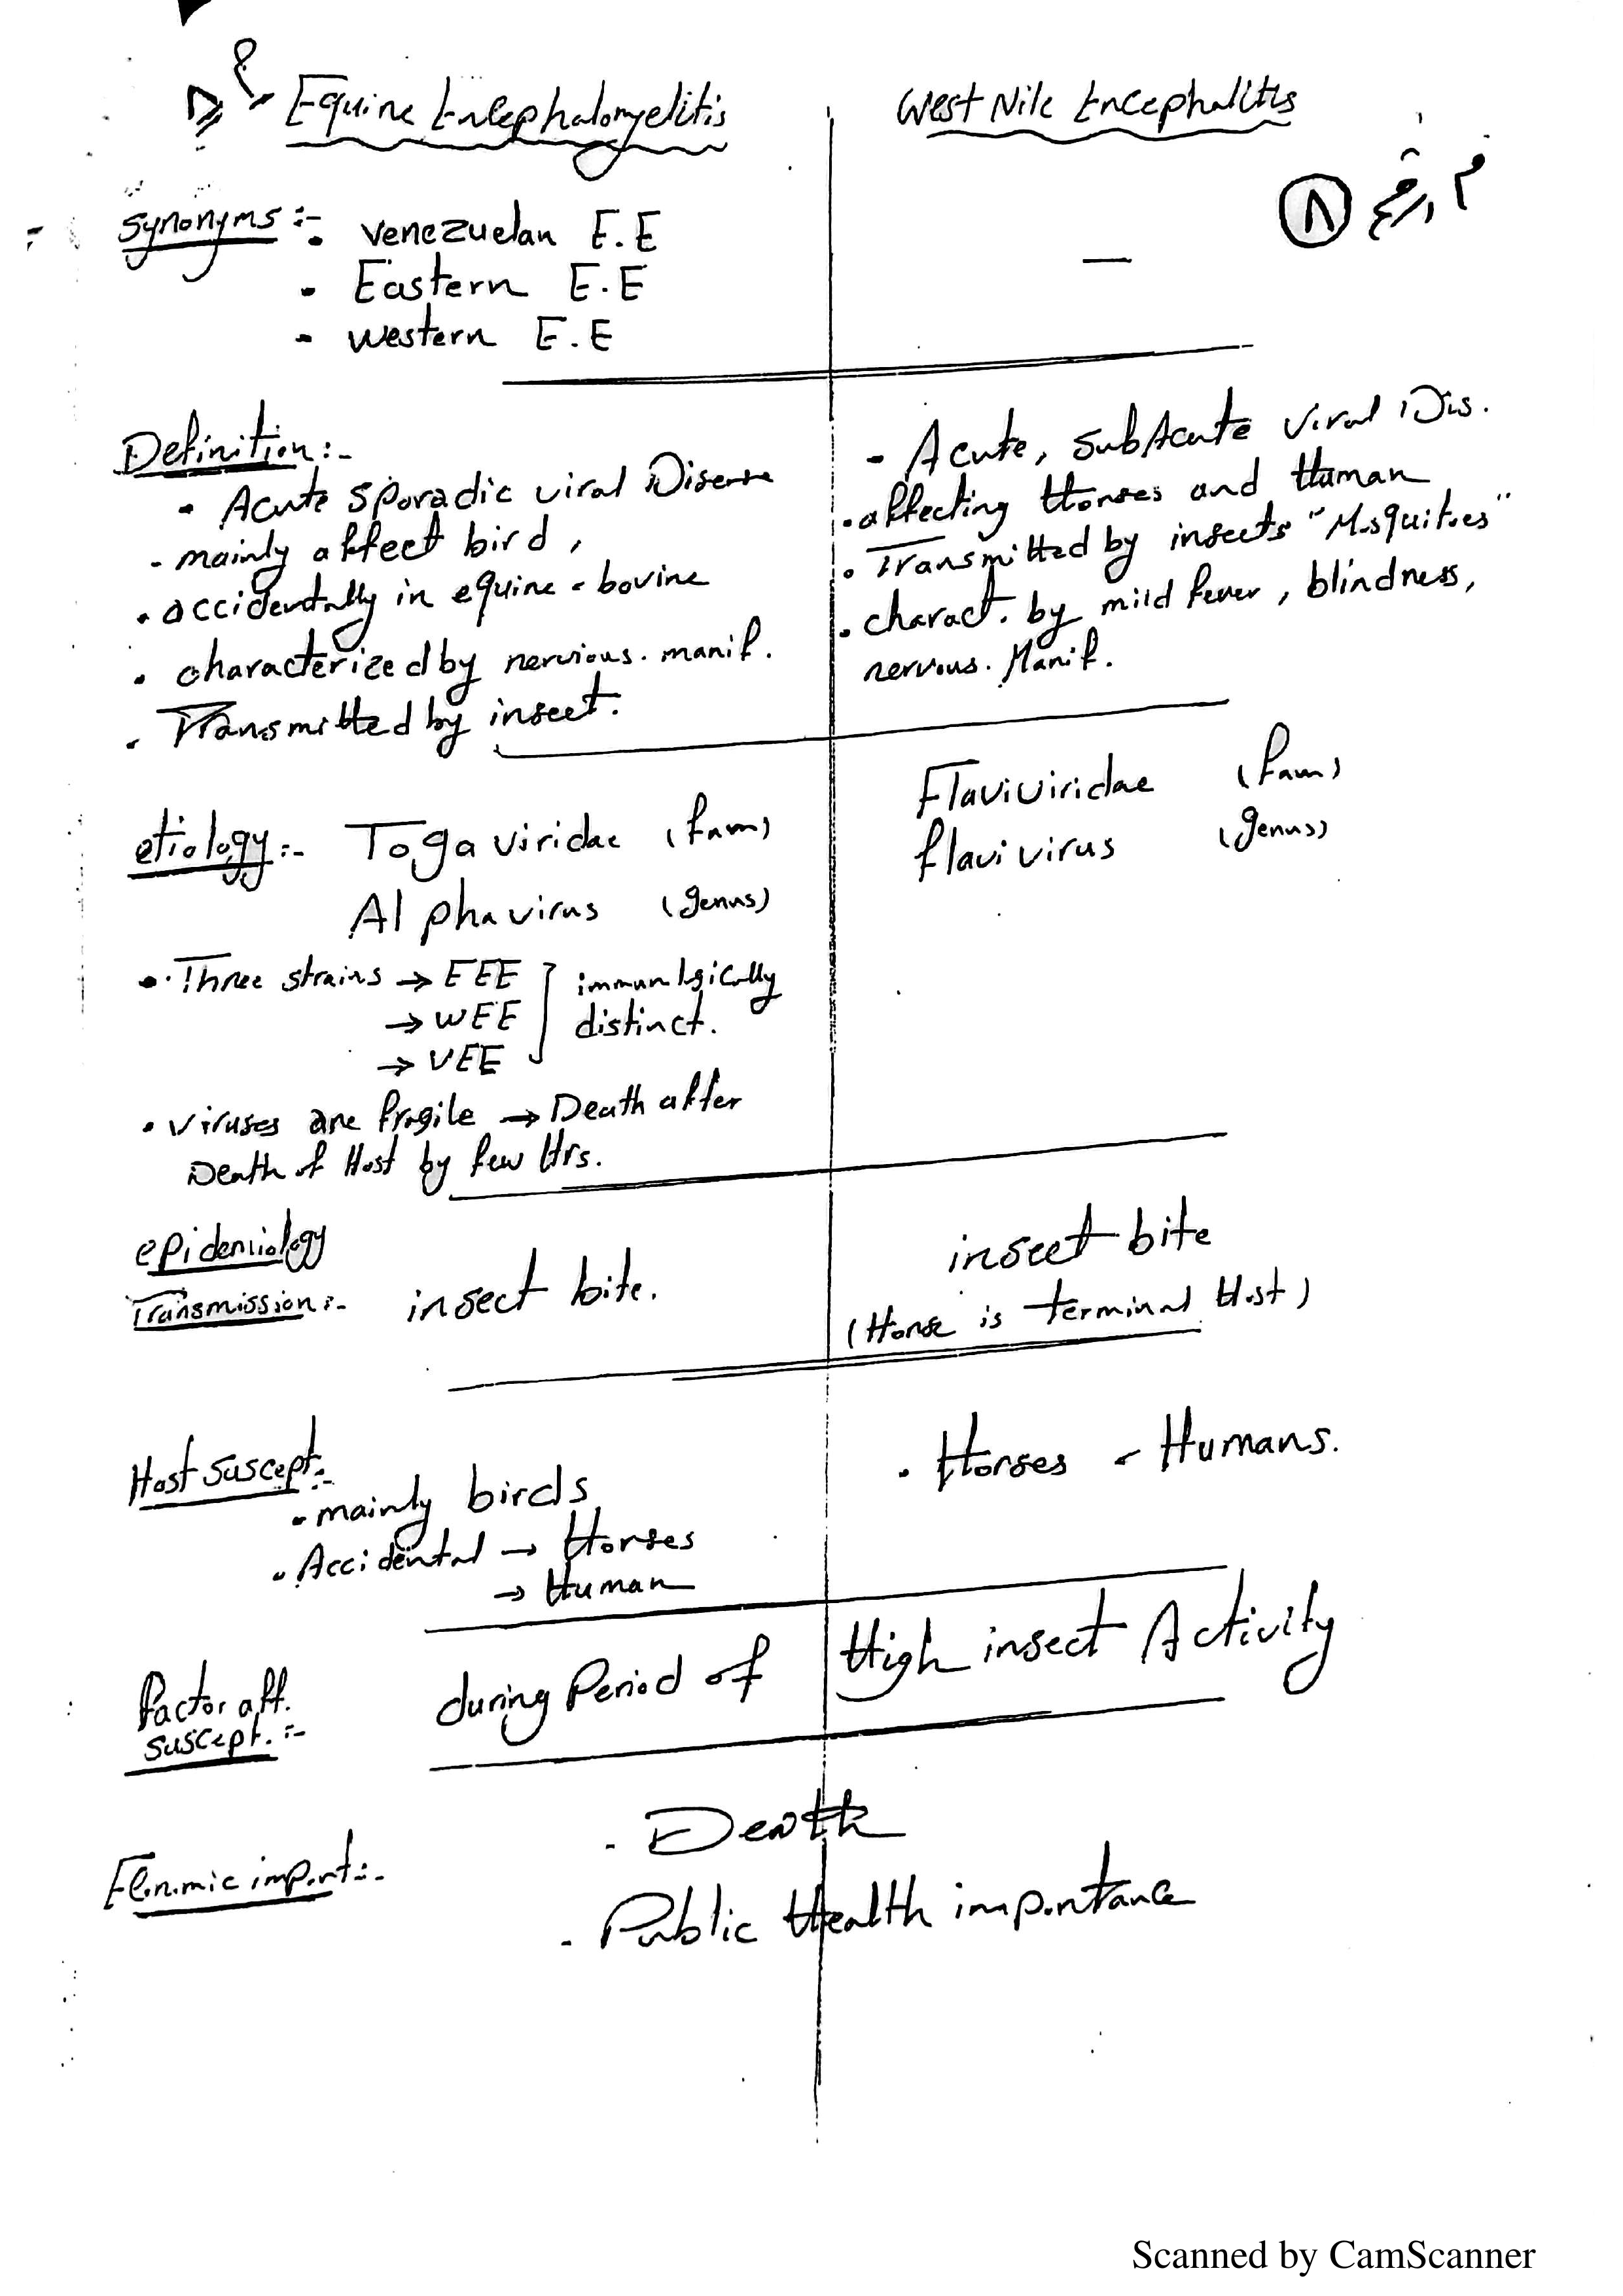 Equine Encephalomyelitis
West Nile Encephalitis
م رقم ٨
Synonyms :-
• Venezuelan E.E
• Eastern E.E
• Western E.E
—
Definition:-
• Acute sporadic viral Disease
- mainly affect bird,
• accidentally in equine - bovine
• characterized by nervious. manif.
• Transmitted by insect.
- Acute, subAcute viral Dis.
• affecting Horses and Human
• Transmitted by insects "Mosquitoes"
• charact. by mild fever, blindness,
nervous. Manif.
etiology:- Togaviridae (fam)
Alphavirus (genus)
• Three strains → EEE
→ WEE
→ VEE
immunlogically
distinct.
• Viruses are fragile → Death after
Death of Host by few Hrs.
Flaviviridae (fam)
flavivirus (genus)
epidemiology
Transmission:- insect bite.
insect bite
(Horse is terminal Host)
Host suscept:-
• mainly birds
• Accidental → Horses
→ Human
• Horses - Humans.
factor aff.
suscept. :-
during Period of High insect Activity
Econ.mic import:-
- Death
- Public Health importance
Scanned by CamScanner